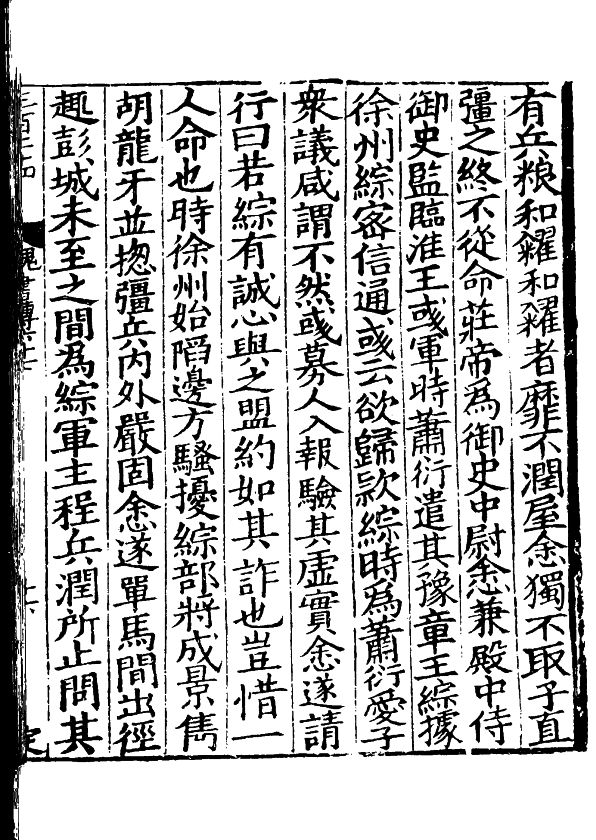 有兵粮和糴和糴者靡不潤屋悆獨不取子直
彊之終不從命莊帝爲御史中尉悆兼殿中侍
御史監臨淮王彧軍時蕭衍遣其豫章王綜據
徐州綜密信通彧云欲歸欵綜時爲蕭衍愛子
衆議咸謂不然彧募人入報驗其虛實悆遂請
行曰若綜有誠心與之盟約如其詐也豈惜一
人命也時徐州始陷邊方騷擾綜部將成景雋
胡龍牙並揔彊兵内外嚴固悆遂單馬間出徑
趣彭城未至之間爲綜軍主程兵潤所止問其
魏書傳六十七